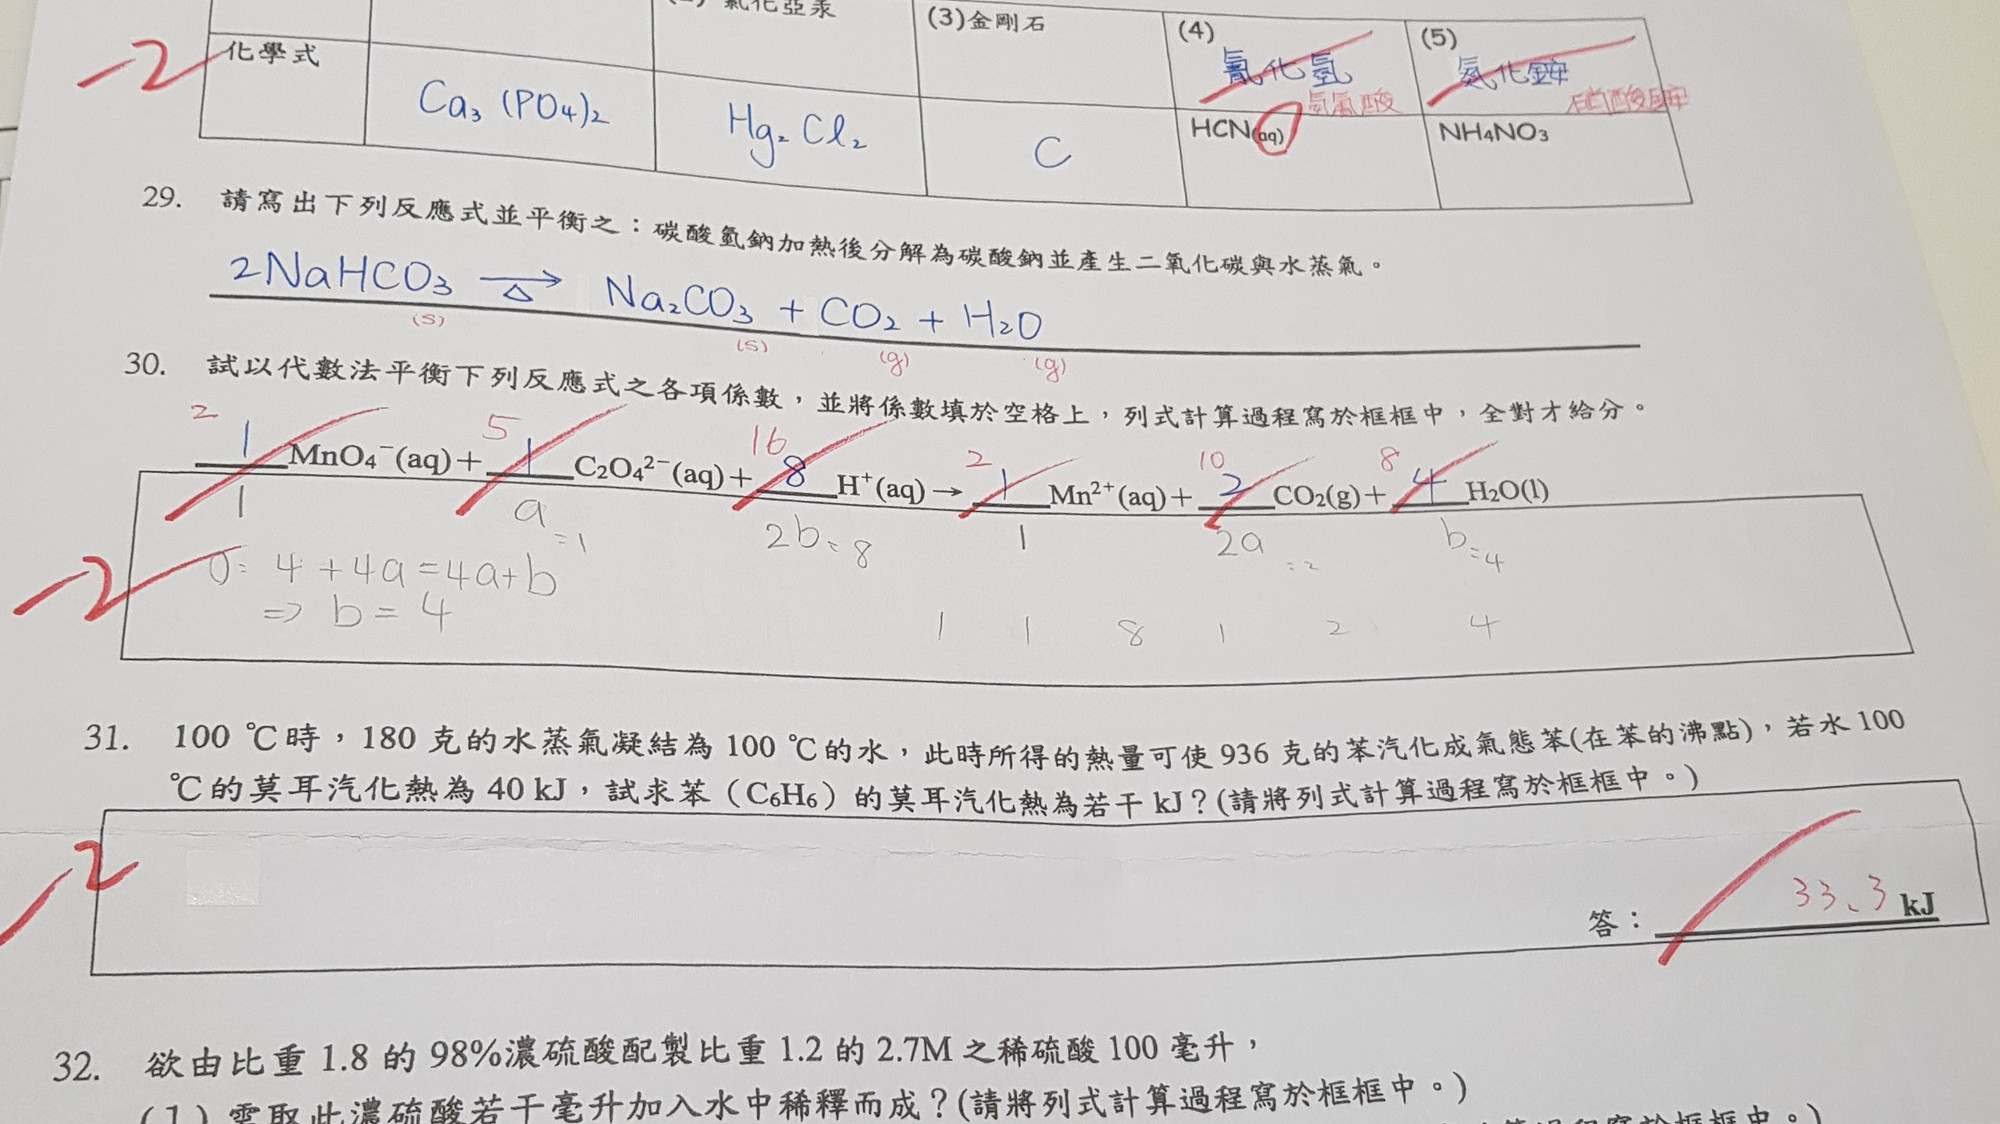 氯化亞汞
(3)金剛石
(4)
(5)
-2
化學式
Ca₃(PO₄)₂
Hg₂Cl₂
C
氰化氫
氫氰酸
HCN(aq)
氨化銨
硝酸銨
NH₄NO₃
29. 請寫出下列反應式並平衡之：碳酸氫鈉加熱後分解為碳酸鈉並產生二氧化碳與水蒸氣。
2NaHCO₃ →△ Na₂CO₃ + CO₂ + H₂O
(s) (s) (g) (g)
30. 試以代數法平衡下列反應式之各項係數，並將係數填於空格上，列式計算過程寫於框框中，全對才給分。
2 5 16 2 10 8
1 MnO₄⁻(aq)+ 1 C₂O₄²⁻(aq)+ 8 H⁺(aq)→ 1 Mn²⁺(aq)+ 2 CO₂(g)+ 4 H₂O(l)
1 a=1 2b=8 1 2a=2 b=4
-2
O: 4+4a=4a+b
=> b=4
1 1 8 1 2 4
31. 100 ℃時，180 克的水蒸氣凝結為 100 ℃的水，此時所得的熱量可使 936 克的苯汽化成氣態苯(在苯的沸點)，若水 100
℃的莫耳汽化熱為 40 kJ，試求苯（C₆H₆）的莫耳汽化熱為若干 kJ？(請將列式計算過程寫於框框中。)
-2
答：33.3 kJ
32. 欲由比重 1.8 的 98%濃硫酸配製比重 1.2 的 2.7M 之稀硫酸 100 毫升，
(1) 需取此濃硫酸若干毫升加入水中稀釋而成？(請將列式計算過程寫於框框中。)
算過程寫於框框中。)